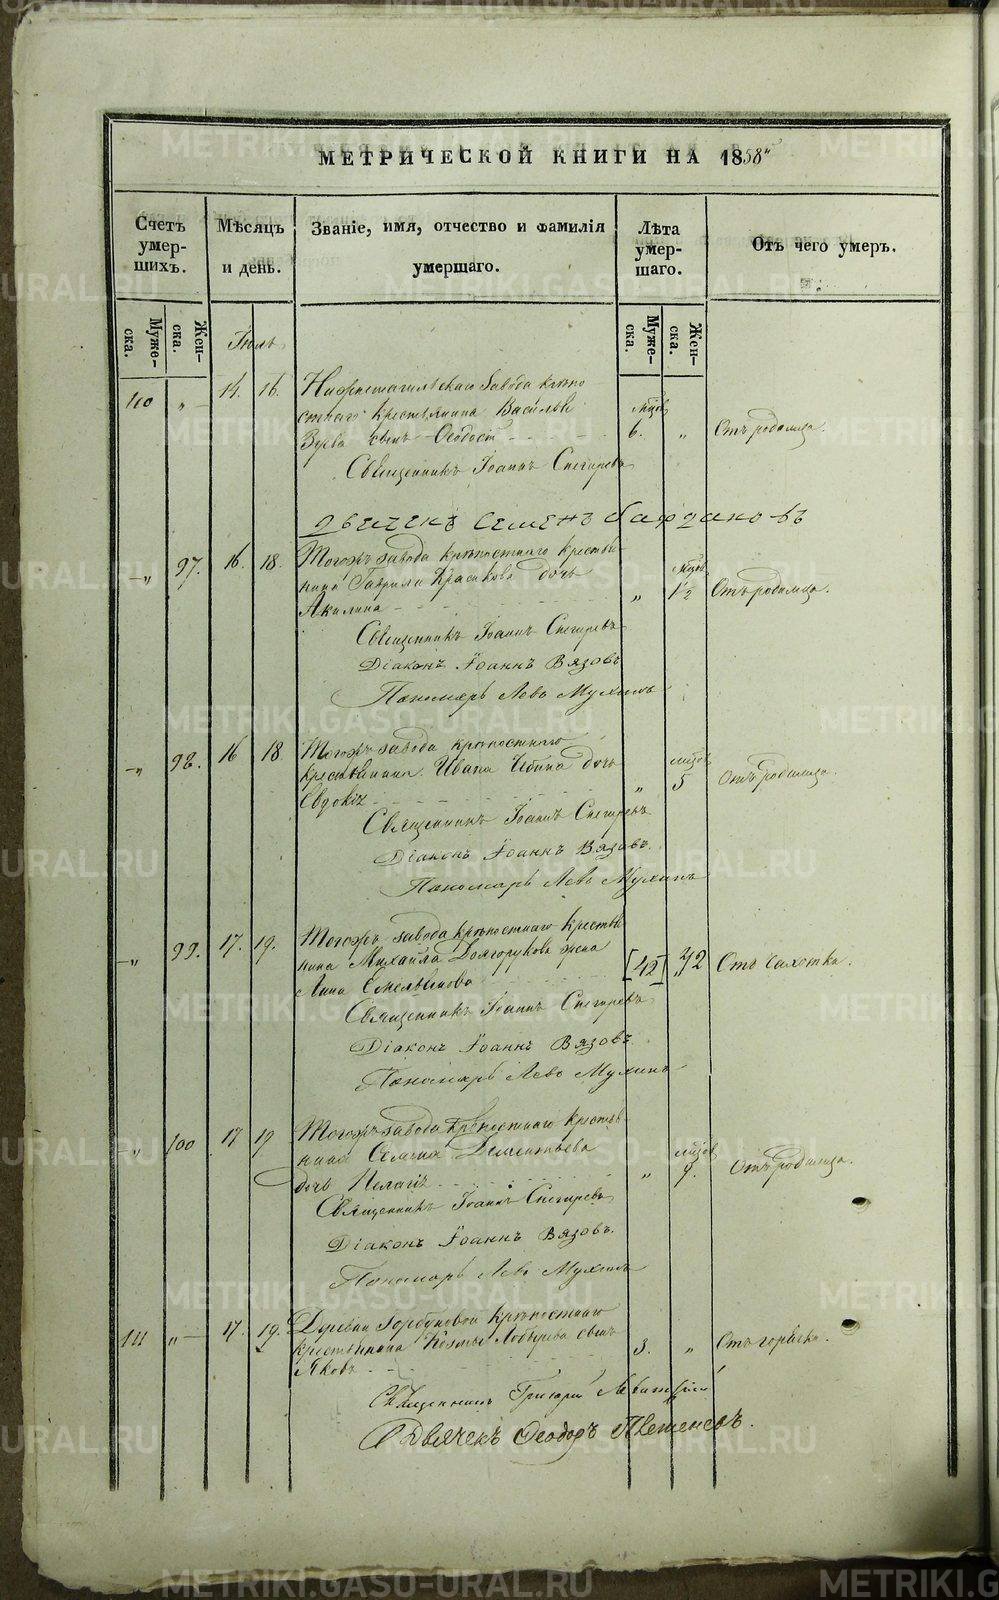 МЕТРИЧЕСКОЙ КНИГИ НА 1858
Счетъ умер-шихъ.
Мѣсяцъ и день.
Званіе, имя, отчество и фамилія умершаго.
Лѣта умер-шаго.
Отъ чего умеръ.
Муже-ска.
Жен-ска.
Муже-ска.
Жен-ска.
Іюль
110 „ 14. 16. Нижнетагильскаго завода крѣпо
стнаго крестьянина Василья
сынъ Ѳеодосій мѣсяц. 6. „ Отъ родимца.
Священникъ Іоаннъ Снегиревъ
Дьячекъ Семенъ
„ 97. 16. 18. Тогожъ завода крѣпостнаго крестья
нина Гаврила Красикова дочь
Акилина „ 1/2 Отъ родимца.
Священникъ Іоаннъ Снегиревъ
Діаконъ Іоаннъ Вязовъ
Пономарь Левъ Мухинъ
„ 98. 16 18. Тогожъ завода крѣпостнаго
крестьянина Ивана дочь
Евдокія „ мѣсяц. 5 Отъ родимца.
Священникъ Іоаннъ Снегиревъ
Діаконъ Іоаннъ Вязовъ.
Пономарь Левъ Мухинъ
„ 99. 17. 19. Тогожъ завода крѣпостнаго крестья
нина Михаила Долгорукова жена
Анна Емельянова [42] 42 Отъ чахотки.
Священникъ Іоаннъ Снегиревъ
Діаконъ Іоаннъ Вязовъ
Пономарь Левъ Мухинъ
„ 100 17 19 Тогожъ завода крѣпостнаго крестья
нина Семена Дементьева
дочь Пелагія „ мѣсяц. 9. Отъ родимца.
Священникъ Іоаннъ Снегиревъ
Діаконъ Іоаннъ Вязовъ.
Пономарь Левъ Мухинъ
111 „ 17. 19. Деревни Горбуновой крѣпостнаго
крестьянина Козмы сынъ
Яковъ 3. „ Отъ горячки.
Священникъ Григорій
Дьячекъ Ѳеодоръ
METRIKI.GASO-URAL.RU